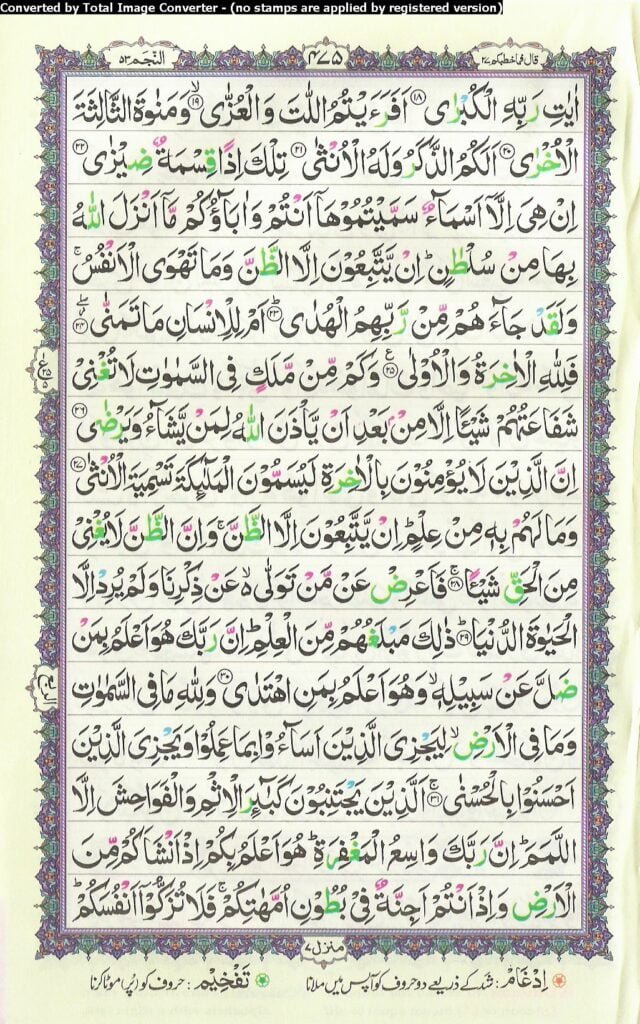 Converted by Total Image Converter - (no stamps are applied by registered version)
قال فما خطبكم ۲۷ ۴۷۵ النجم ۵۳
اٰيٰتِ رَبِّهِ الْكُبْرٰى ۝۱۸ اَفَرَءَيْتُمُ اللّٰتَ وَالْعُزّٰى ۙ۝۱۹ وَمَنٰوةَ الثَّالِثَةَ
الْاُخْرٰى ۝۲۰ اَلَكُمُ الذَّكَرُ وَلَهُ الْاُنْثٰى ۝۲۱ تِلْكَ اِذًا قِسْمَةٌ ضِيْزٰى ۝۲۲
اِنْ هِىَ اِلَّاۤ اَسْمَآءٌ سَمَّيْتُمُوْهَاۤ اَنْتُمْ وَاٰبَآؤُكُمْ مَّاۤ اَنْزَلَ اللّٰهُ
بِهَا مِنْ سُلْطٰنٍ ؕ اِنْ يَّتَّبِعُوْنَ اِلَّا الظَّنَّ وَمَا تَهْوَى الْاَنْفُسُ ۚ
وَلَقَدْ جَآءَهُمْ مِّنْ رَّبِّهِمُ الْهُدٰى ؕ۝۲۳ اَمْ لِلْاِنْسَانِ مَا تَمَنّٰى ۝۲۴
فَلِلّٰهِ الْاٰخِرَةُ وَالْاُوْلٰى ۝۲۵ وَكَمْ مِّنْ مَّلَكٍ فِى السَّمٰوٰتِ لَا تُغْنِىْ
شَفَاعَتُهُمْ شَيْـًٔا اِلَّا مِنْۢ بَعْدِ اَنْ يَّاْذَنَ اللّٰهُ لِمَنْ يَّشَآءُ وَيَرْضٰى ۝۲۶
اِنَّ الَّذِيْنَ لَا يُؤْمِنُوْنَ بِالْاٰخِرَةِ لَيُسَمُّوْنَ الْمَلٰٓئِكَةَ تَسْمِيَةَ الْاُنْثٰى ۝۲۷
وَمَا لَهُمْ بِهٖ مِنْ عِلْمٍ ؕ اِنْ يَّتَّبِعُوْنَ اِلَّا الظَّنَّ ۚ وَاِنَّ الظَّنَّ لَا يُغْنِىْ
مِنَ الْحَقِّ شَيْـًٔا ۚ۝۲۸ فَاَعْرِضْ عَنْ مَّنْ تَوَلّٰى ۙ۬ عَنْ ذِكْرِنَا وَلَمْ يُرِدْ اِلَّا
الْحَيٰوةَ الدُّنْيَا ؕ۝۲۹ ذٰلِكَ مَبْلَغُهُمْ مِّنَ الْعِلْمِ ؕ اِنَّ رَبَّكَ هُوَ اَعْلَمُ بِمَنْ
ضَلَّ عَنْ سَبِيْلِهٖ ۙ وَهُوَ اَعْلَمُ بِمَنِ اهْتَدٰى ۝۳۰ وَلِلّٰهِ مَا فِى السَّمٰوٰتِ
وَمَا فِى الْاَرْضِ ۙ لِيَجْزِىَ الَّذِيْنَ اَسَآءُوْا بِمَا عَمِلُوْا وَيَجْزِىَ الَّذِيْنَ
اَحْسَنُوْا بِالْحُسْنٰى ۚ۝۳۱ اَلَّذِيْنَ يَجْتَنِبُوْنَ كَبٰٓئِرَ الْاِثْمِ وَالْفَوَاحِشَ اِلَّا
اللَّمَمَ ؕ اِنَّ رَبَّكَ وَاسِعُ الْمَغْفِرَةِ ؕ هُوَ اَعْلَمُ بِكُمْ اِذْ اَنْشَاَكُمْ مِّنَ
الْاَرْضِ وَاِذْ اَنْتُمْ اَجِنَّةٌ فِىْ بُطُوْنِ اُمَّهٰتِكُمْ ۚ فَلَا تُزَكُّوْۤا اَنْفُسَكُمْ ؕ
منزل ۷
اِدْغَام : شد کے ذریعے دو حروف کو آپس میں ملانا تَفْخِيْم : حروف کو (پُر) موٹا کرنا